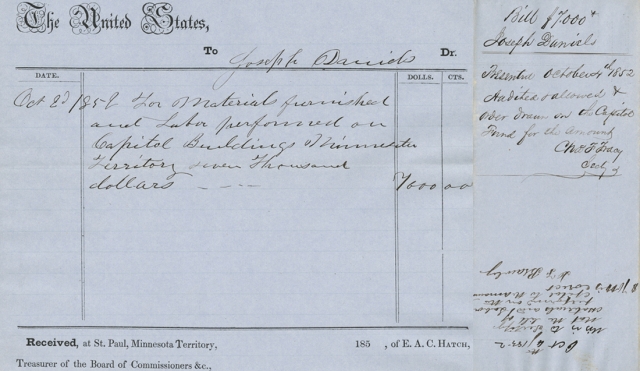 The United States,
To Joseph Daniels Dr.
DATE. DOLLS. CTS.
Oct 2d 1852 For Materials furnished
and Labor performed on
Capitol Buildings Minnesota
Territory seven Thousand
dollars 7000 00
Received, at St. Paul, Minnesota Territory, 185 , of E. A. C. HATCH,
Treasurer of the Board of Commissioners &c.,
Bill $7000
Joseph Daniels
Presented October 4th 1852
Audited & allowed &
order drawn on the Capitol
Fund for the amount
Chas F Tracy
Secty
Oct 1852